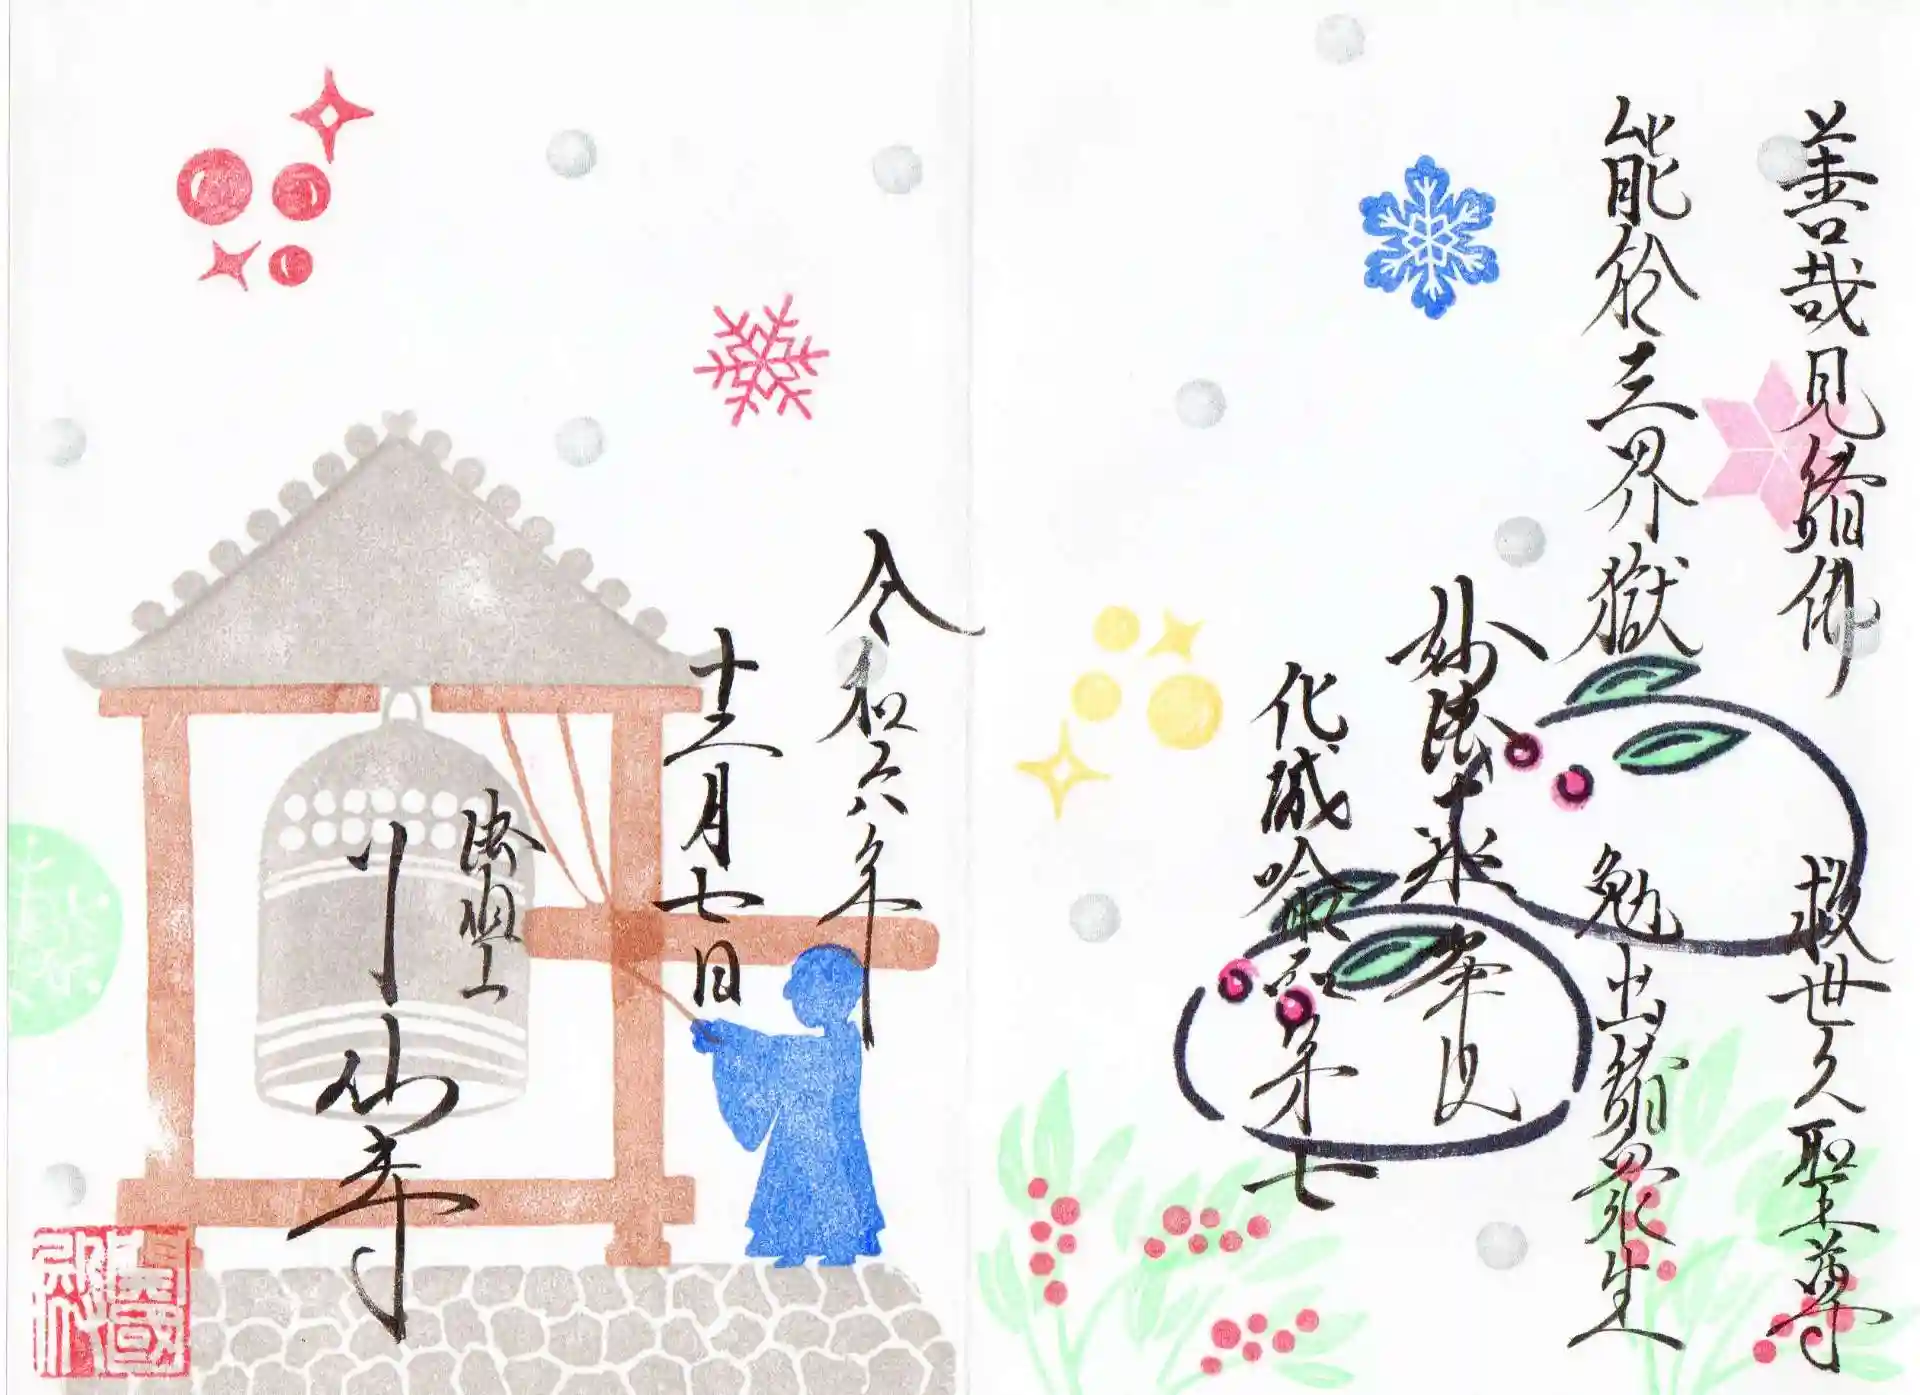 善哉見諸佛 救世之聖尊
能於三界獄 勉出諸眾生
妙法蓮華経
化城喩品第七
令和六年
十二月七日
川山寺